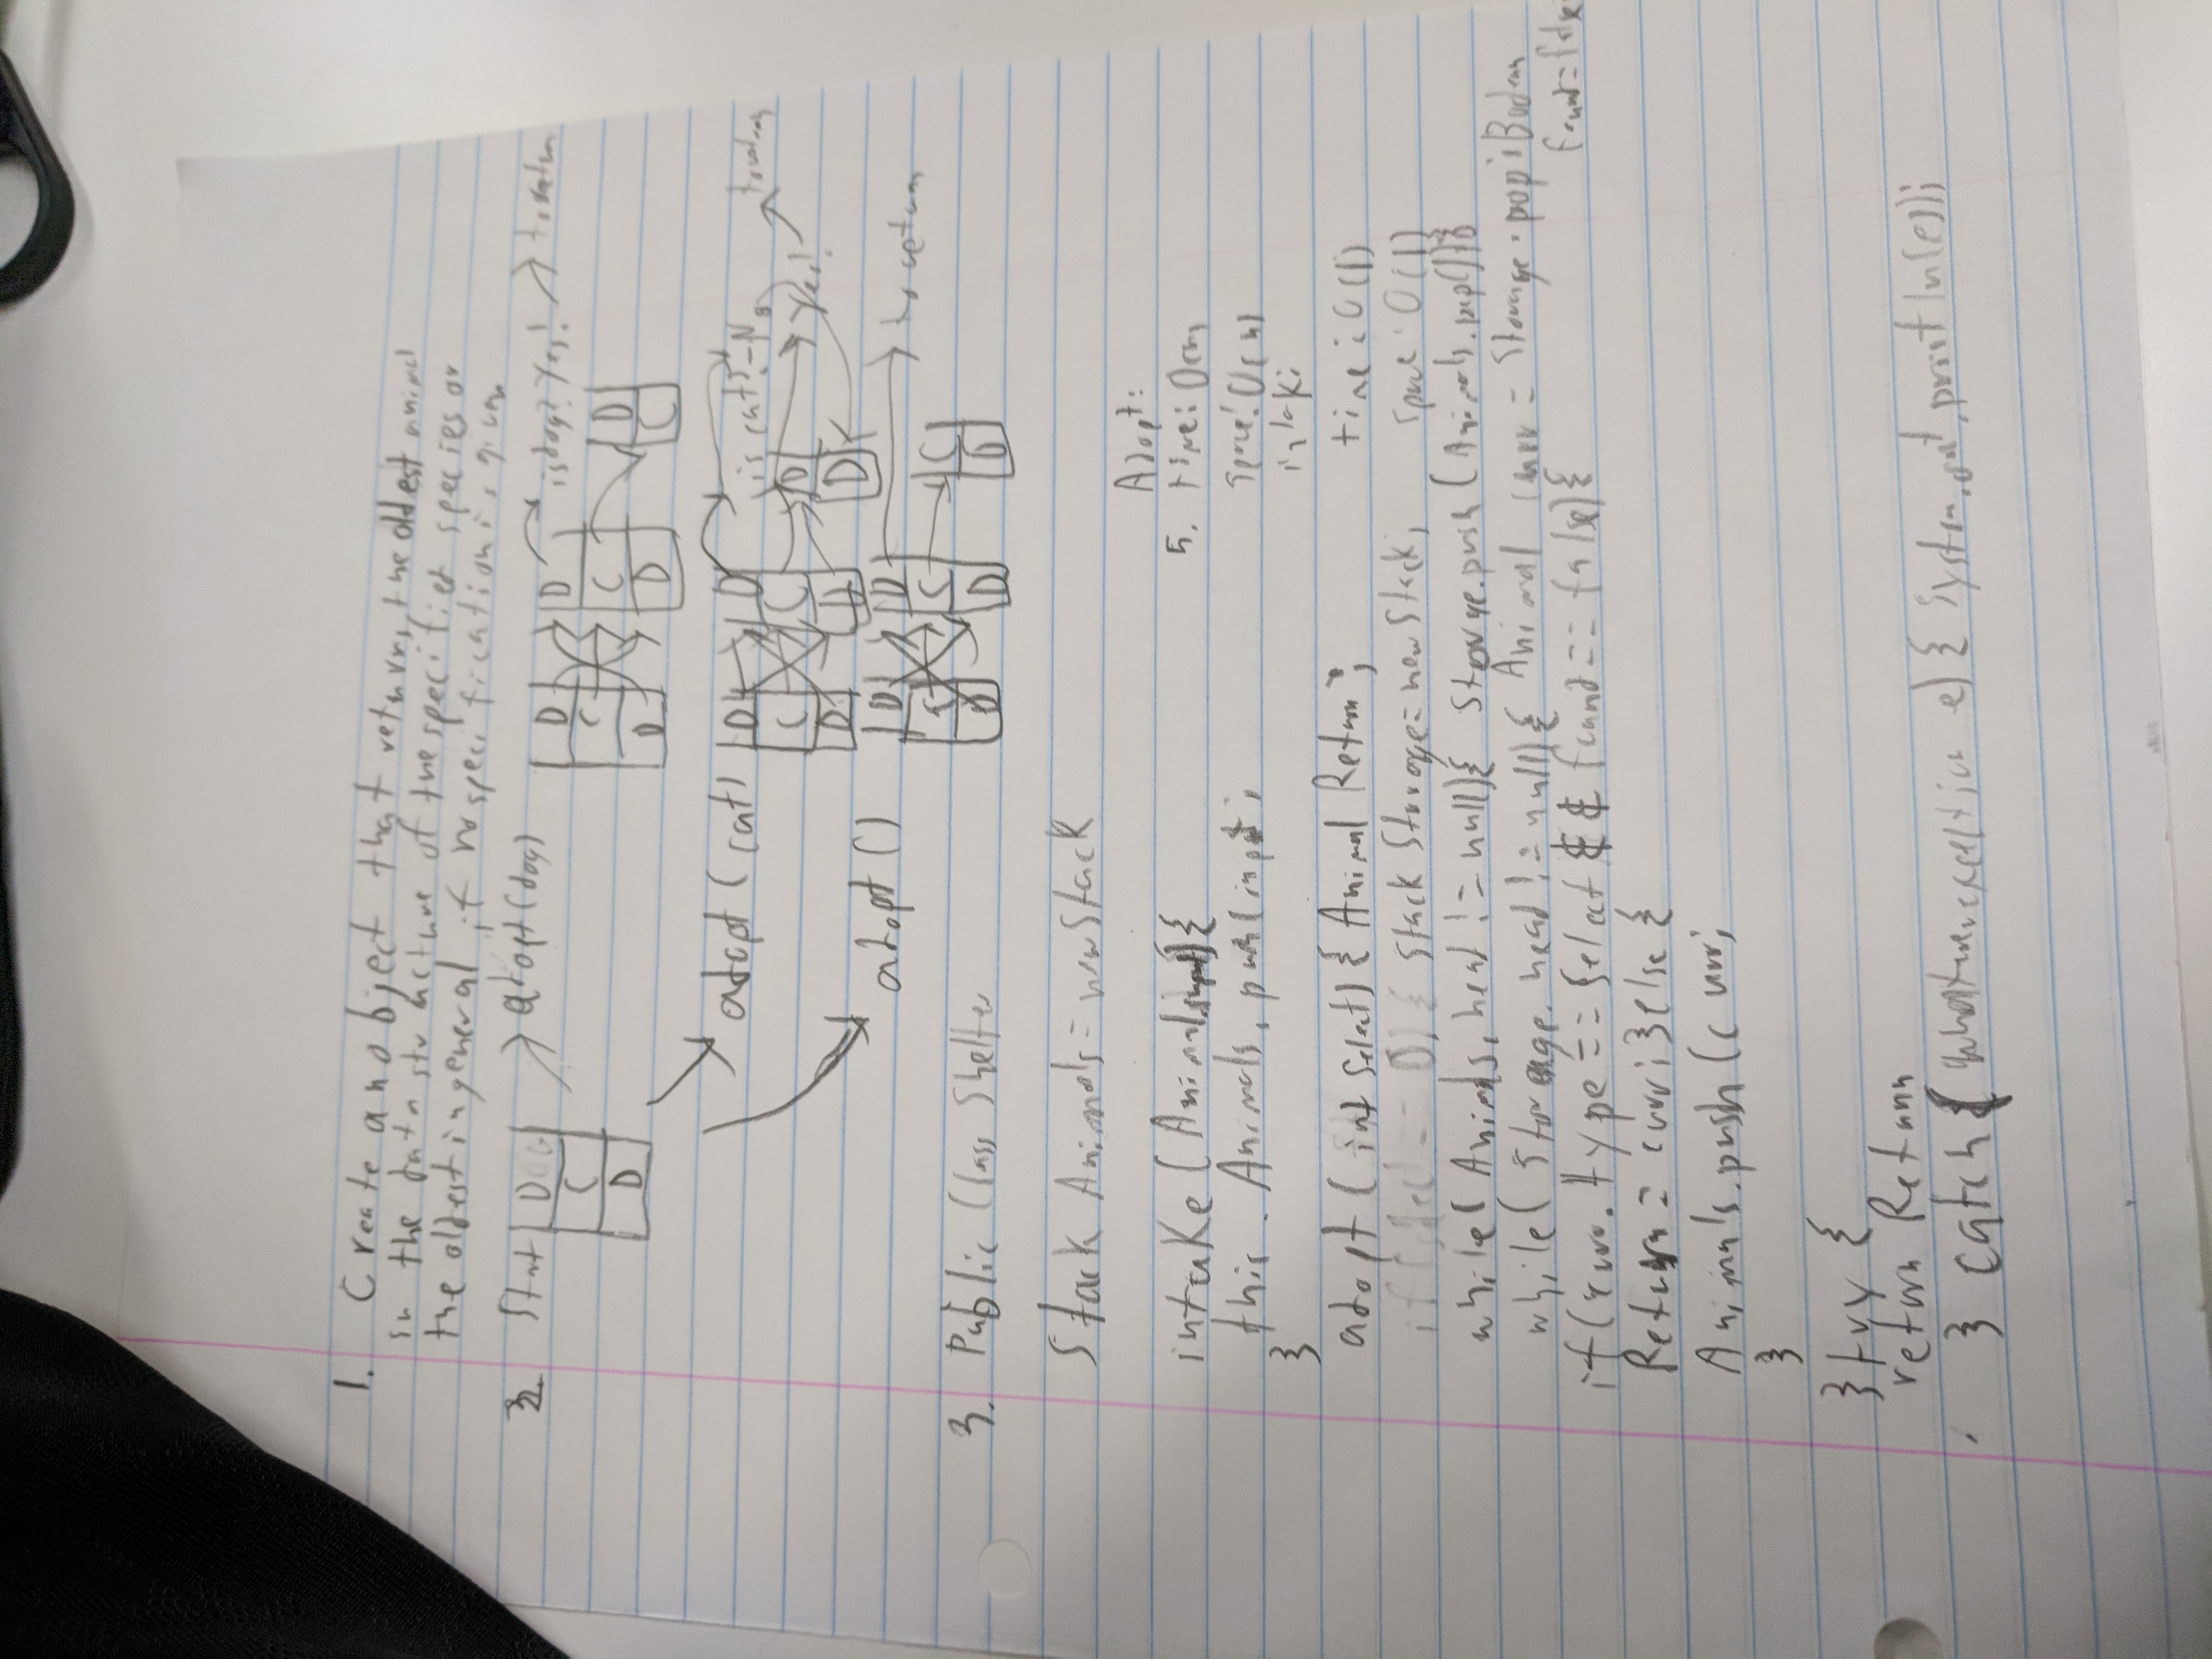 1. Create an object that returns the oldest animal
in the data structure of the specified species or
the oldest in general if no specification is given
2. Start D C D adopt(dog) D C D D C D is dog? Yes! to return D C
adopt(cat) D C D D C D is cat? - No D D Yes! to return
adopt() D C D D C D C D to return
3. Public Class Shelter
Stack Animals = new Stack
Adopt:
5. time: O(n)
space: O(n)
intake:
time: O(1)
space: O(1)
intake (Animal input){
this. Animals. push(input);
}
adopt (int select) { Animal Return;
if (select == 0) { Stack Storage = new Stack;
while (Animals. head != null){ Storage.push (Animals.pop()}
while( Storage. head != null){ Animal curr = Storage.pop; Boolean
found = false
if (curr. type == select && found == false){
Return = curr; } else {
Animals.push (curr;
}
} try {
return Return
} catch { whateverexception e) { System.out.println(e);